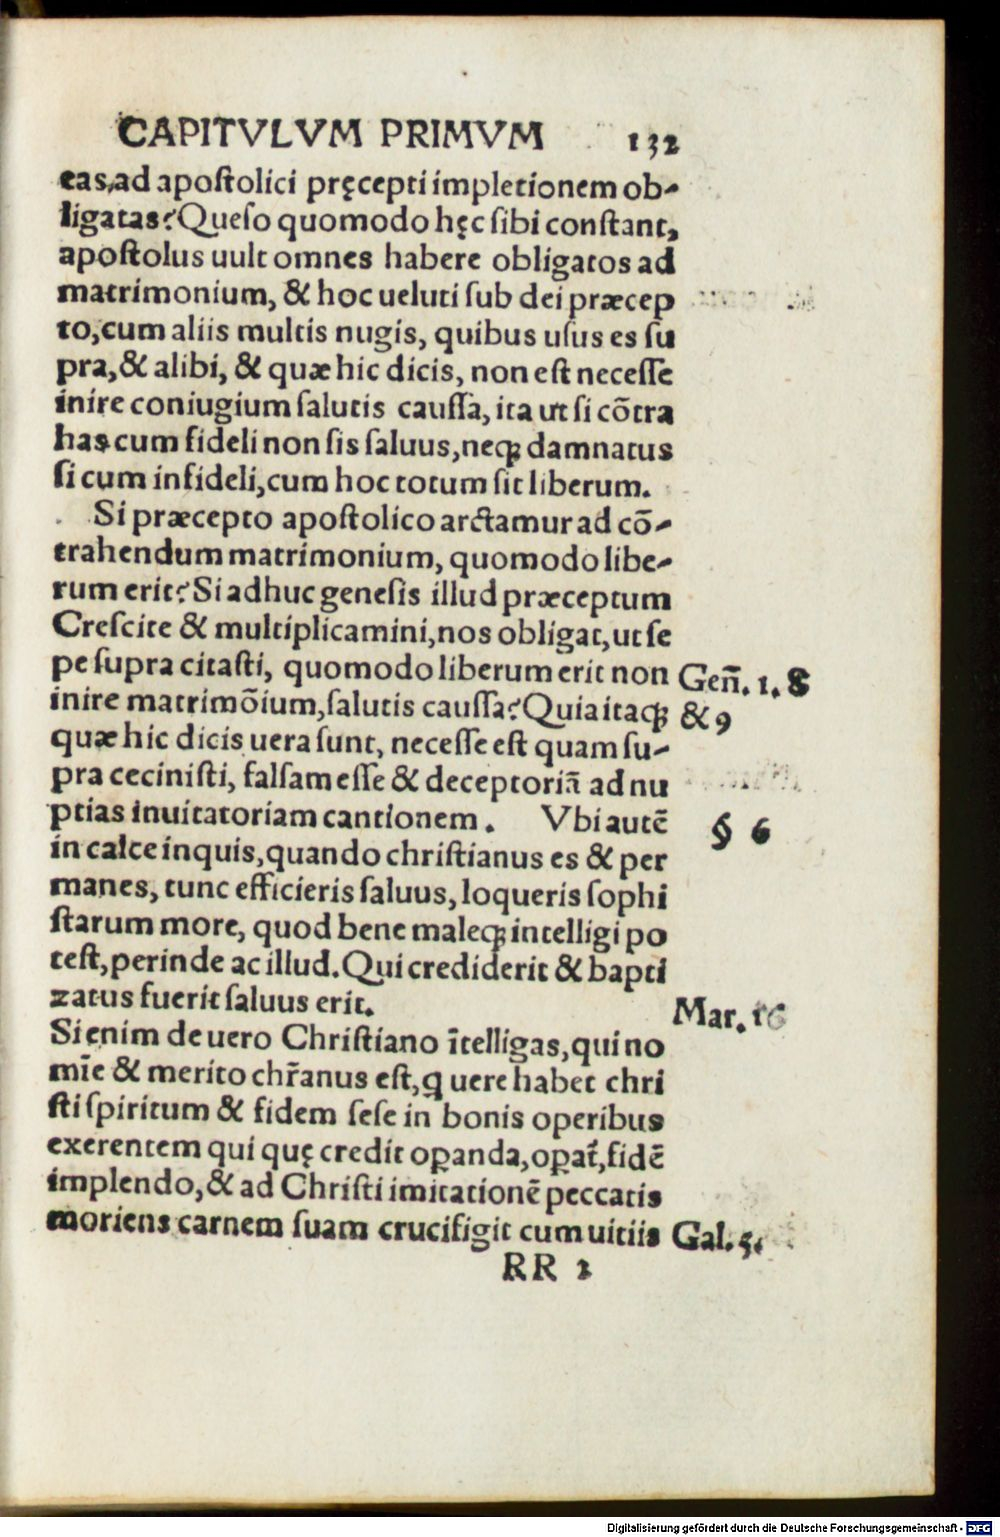 CAPITVLVM PRIMVM 132
eas, ad apostolici pręcepti impletionem ob-
ligatas? Queso quomodo hęc sibi constant,
apostolus uult omnes habere obligatos ad
matrimonium, & hoc ueluti sub dei præcep
to, cum aliis multis nugis, quibus usus es su
pra, & alibi, & quæ hic dicis, non est necesse
inire coniugium salutis caussa, ita ut si cõtra
has cum fideli non sis saluus, neqꝫ damnatus
si cum infideli, cum hoc totum sit liberum.
Si præcepto apostolico arctamur ad cõ-
trahendum matrimonium, quomodo libe-
rum erit? Si adhuc genesis illud præceptum
Crescite & multiplicamini, nos obligat, ut se
pe supra citasti, quomodo liberum erit non
Geñ. 1. 8
inire matrimõium, salutis caussa? Quia itaqꝫ
& 9
quæ hic dicis uera sunt, necesse est quam su-
pra cecinisti, falsam esse & deceptoriã ad nu
ptias inuitatoriam cantionem. Vbi autẽ
§ 6
in calce inquis, quando christianus es & per
manes, tunc efficieris saluus, loqueris sophi
starum more, quod bene maleqꝫ intelligi po
test, perinde ac illud. Qui crediderit & bapti
zatus fuerit saluus erit.
Mar. 16
Si enim de uero Christiano ĩtelligas, qui no
mĩe & merito chr̃anus est, ꝗ uere habet chri
sti spiritum & fidem sese in bonis operibus
exerentem qui quę credit oꝑanda, oꝑat̃, fidẽ
implendo, & ad Christi imitationẽ peccatis
moriens carnem suam crucifigit cum uitiis
Gal. 5.
RR 2
Digitalisierung gefördert durch die Deutsche Forschungsgemeinschaft - DFG